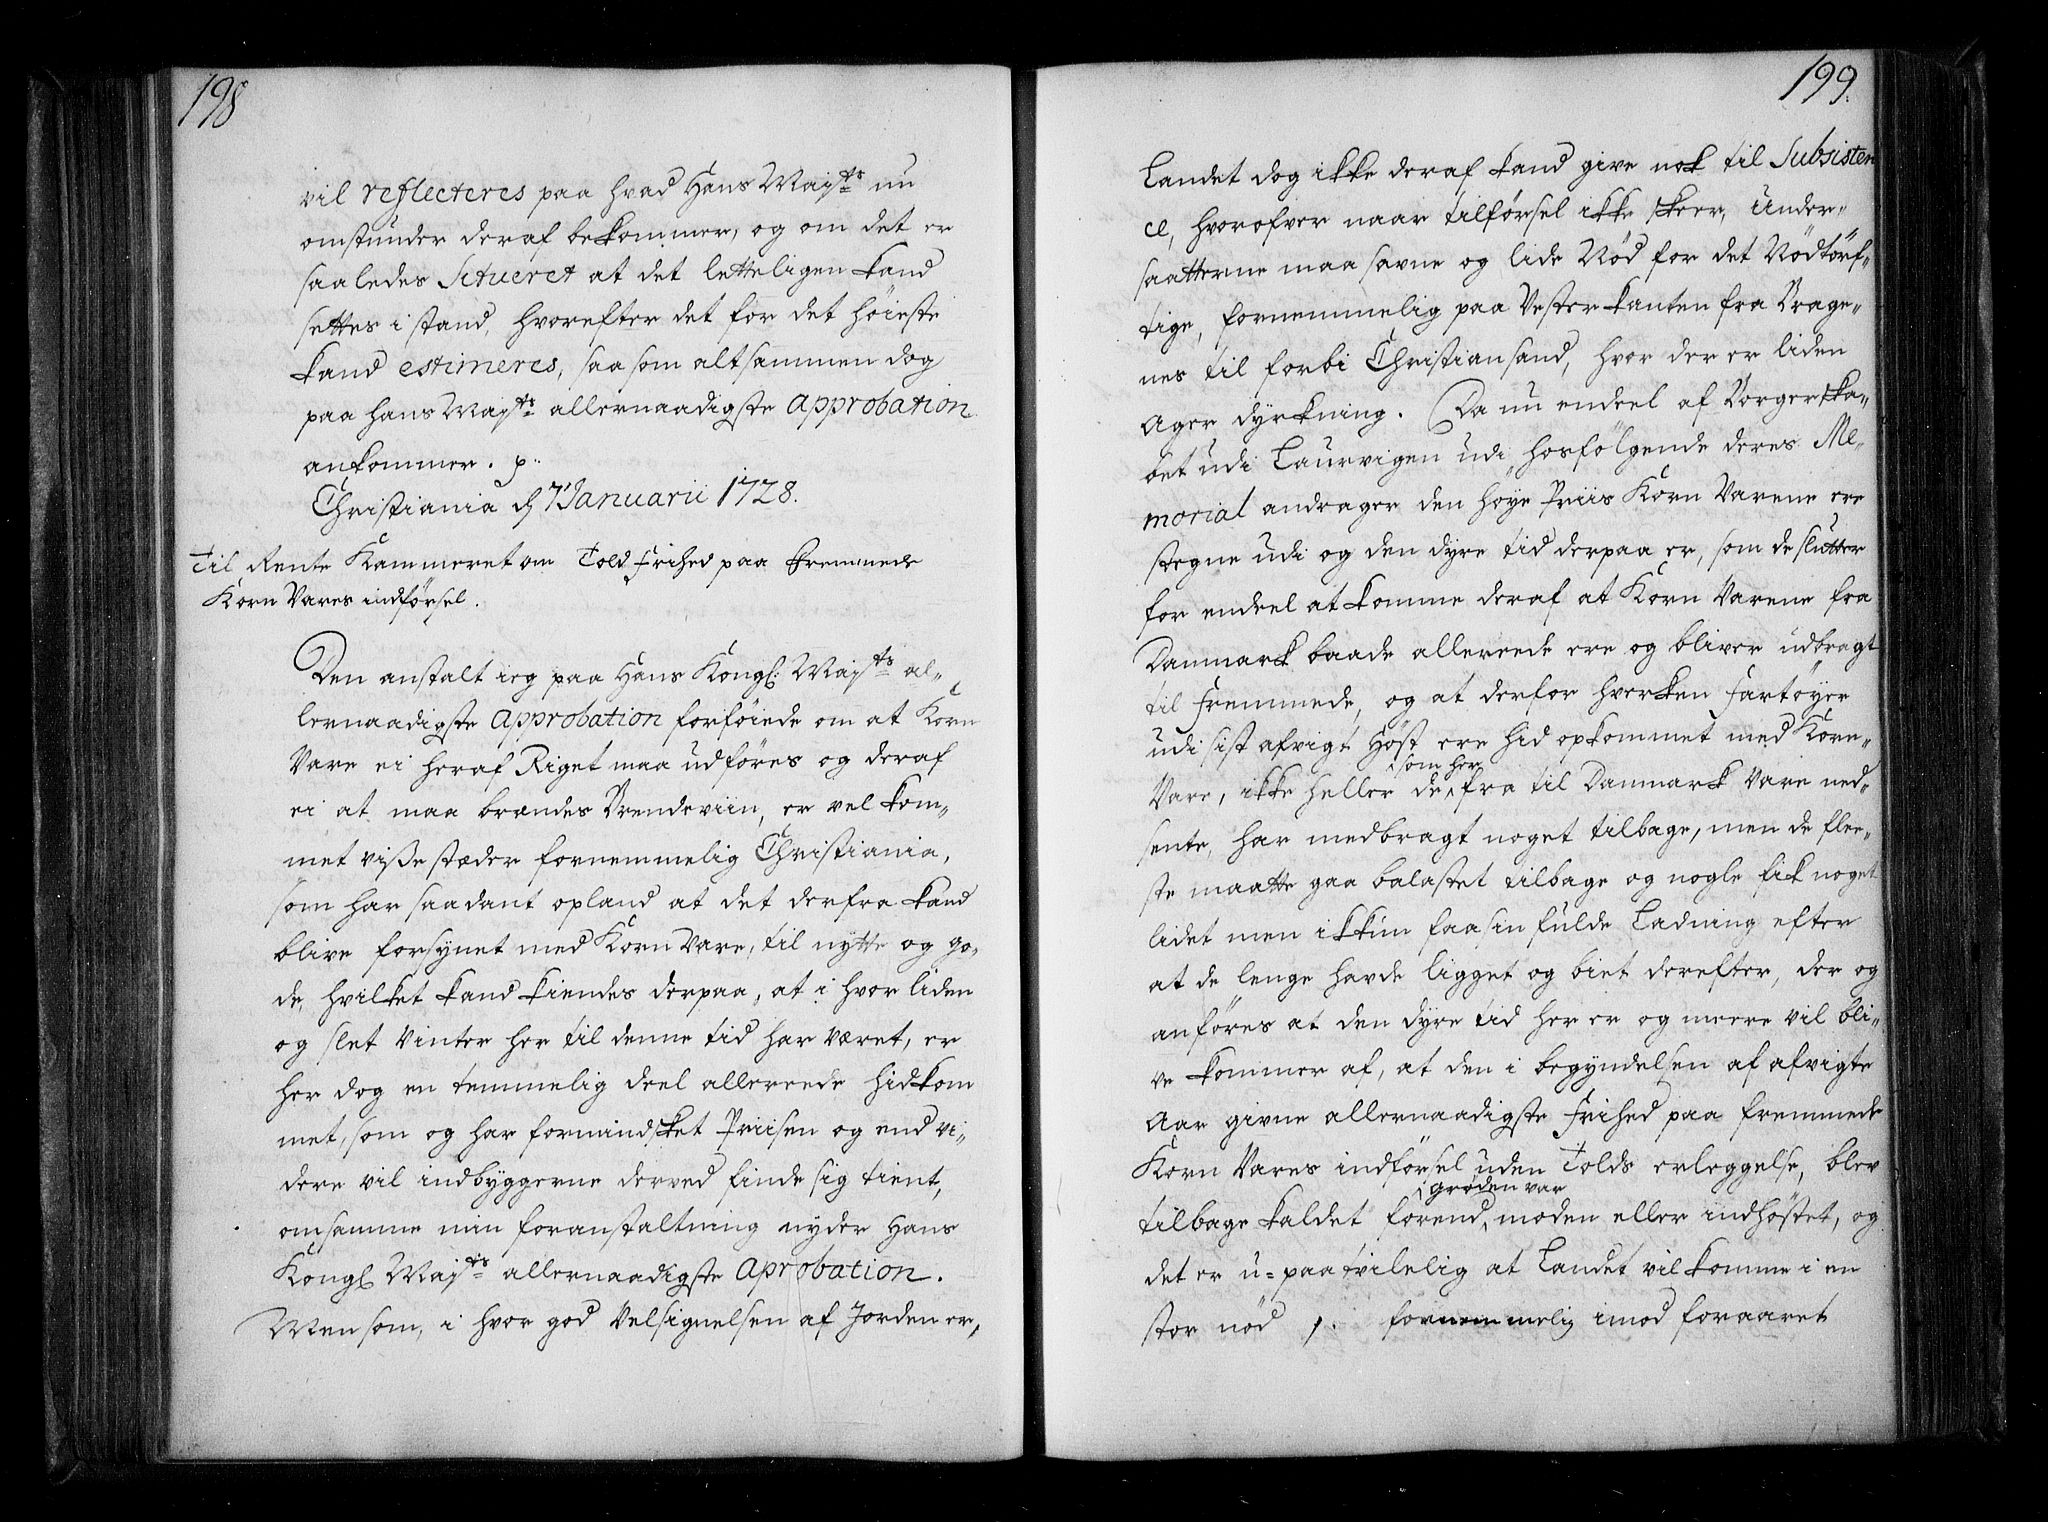 198
vil reflecteres paa hvad Hans Mayts nu
omstunder deraf bekommer, og om det er
saaledes Situeret at det letteligen kand
settes i stand, hvorefter det for det höieste
kand estimeres, saasom altsammen dog
paa hans Mayts allernaadigste Approbation
ankommer. p.
Christiania d 7 Januarii 1728.
Til Rente Kammeret om Told frihed paa fremmede
Korn Vares indförsel.
Den anstalt ieg paa Hans Kongl: Mayts al„
lernaadigste Approbation forföiede om at Korn
Vare ei heraf Riget maa udföres og deraf
ei at maa brændes Brendeviin, er vel kom„
met viße stæder fornemmelig Christiania,
som har saadant opland at det derfra kand
blive forsynet med Korn Vare, til nytte og go„
de, hvilket kand kiendes derpaa, at i hvor liden
og slet Vinter her til denne tid har været, er
her dog en temmelig deel allereede hidkom
met, som og har formindsket Priisen og end vi„
dere vil indbyggerne derved finde sig tient,
om samme min foranstaltning nyder Hans
Kongl Mayts allernaadigste Aprobation.
Men som, i hvor god Velsignelsen af Jorden er,
199.
Landet dog ikke deraf kand give nok til Subsisten
ce, hvorofver naar tilförsel ikke skeer, Under„
saatterne maa savne og lide Nöd for det Nödtörf„
tige, fornemmelig paa Vester kanten fra Brage„
nes til forbi Christiansand, hvor der er liden
Ager dyrkning. Da nu endeel af Borgerska„
bet udi Laurvigen udi hosfölgende deres Me„
morial andrager den höye Priis Korn Varene ere
stegne udi og den dyre tid derpaa er, som de slutter
for endeel at komme deraf at Korn Varene fra
Danmark baade allereede ere og bliver udbragt
til Fremmede, og at derfor hverken Fartöyer
udi sist afvigt Höst ere hid opkommet med Korn„
som her
Vare, ikke heller de fra til Danmark Vare ned„
sente, har medbragt noget tilbage, men de flee„
ste maatte gaa balastet tilbage og nogle fik noget
lidet men ikkun faa sin fulde Ladning efter
at de lenge havde ligget og biet derefter, der og
anföres at den dyre tid her er og meere vil bli„
ve kommer af, at den i begyndelsen af afvigte
Aar givne allernaadigste Frihed paa fremmede
Korn Vares indförsel uden Tolds erleggelse, blev
gröden var
tilbage kaldet förend moden eller indhöstet, og
det er u=paatvilelig at Landet vil komme i en
stor nöd p. fornemmelig imod foraaret